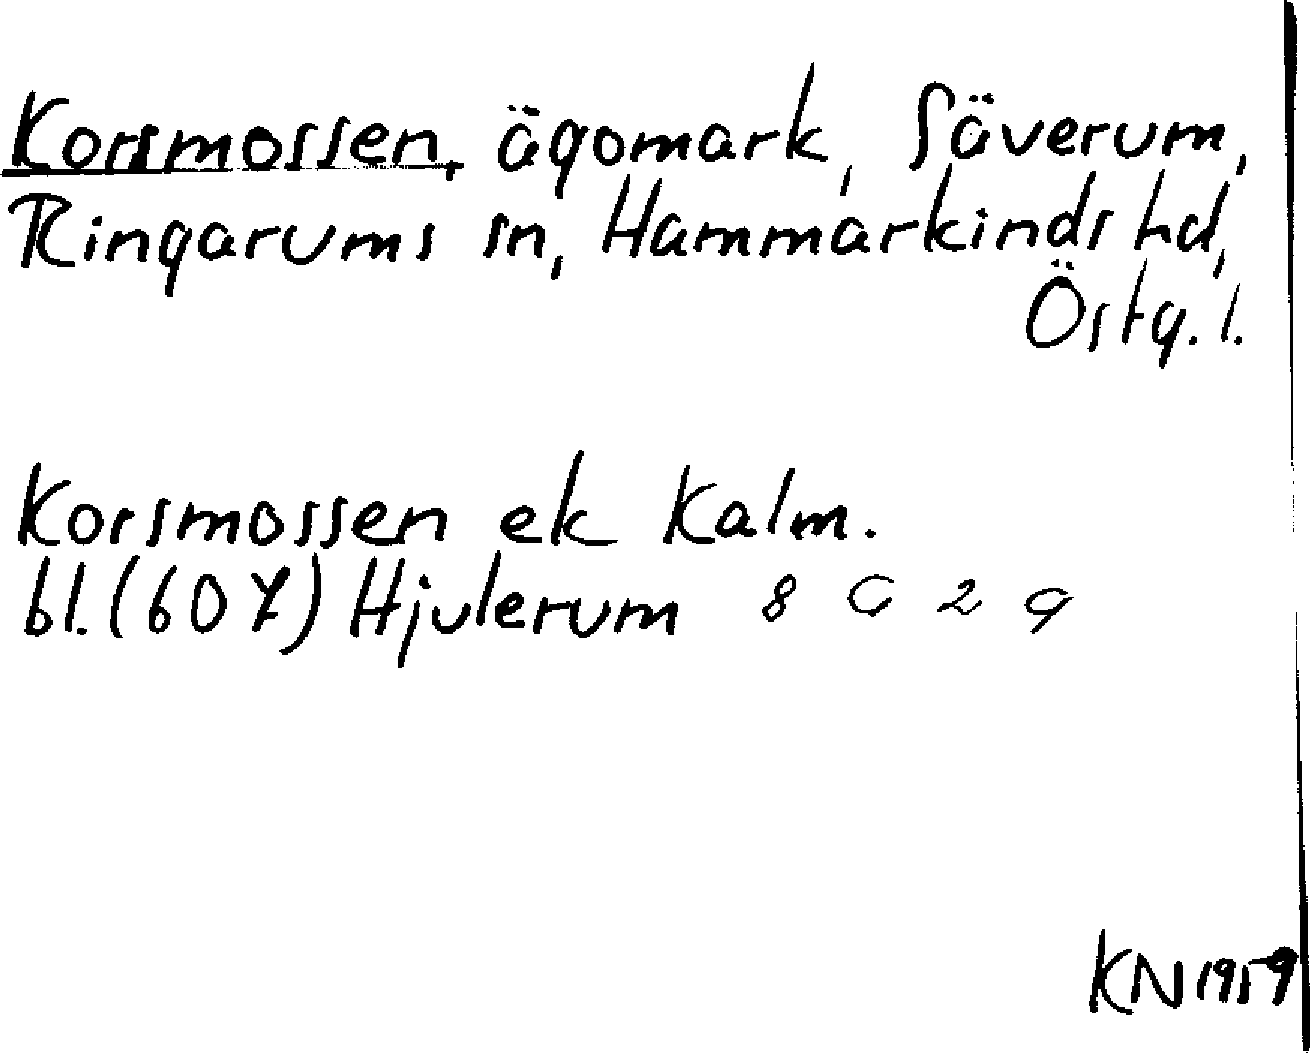 Korsmossen, ägomark, Säverum,
Ringarums sn, Hammarkinds hd,
Östg. l.
Korsmossen ek Kalm.
bl. (607) Hjulerum 8 G 2 g
KN 1959